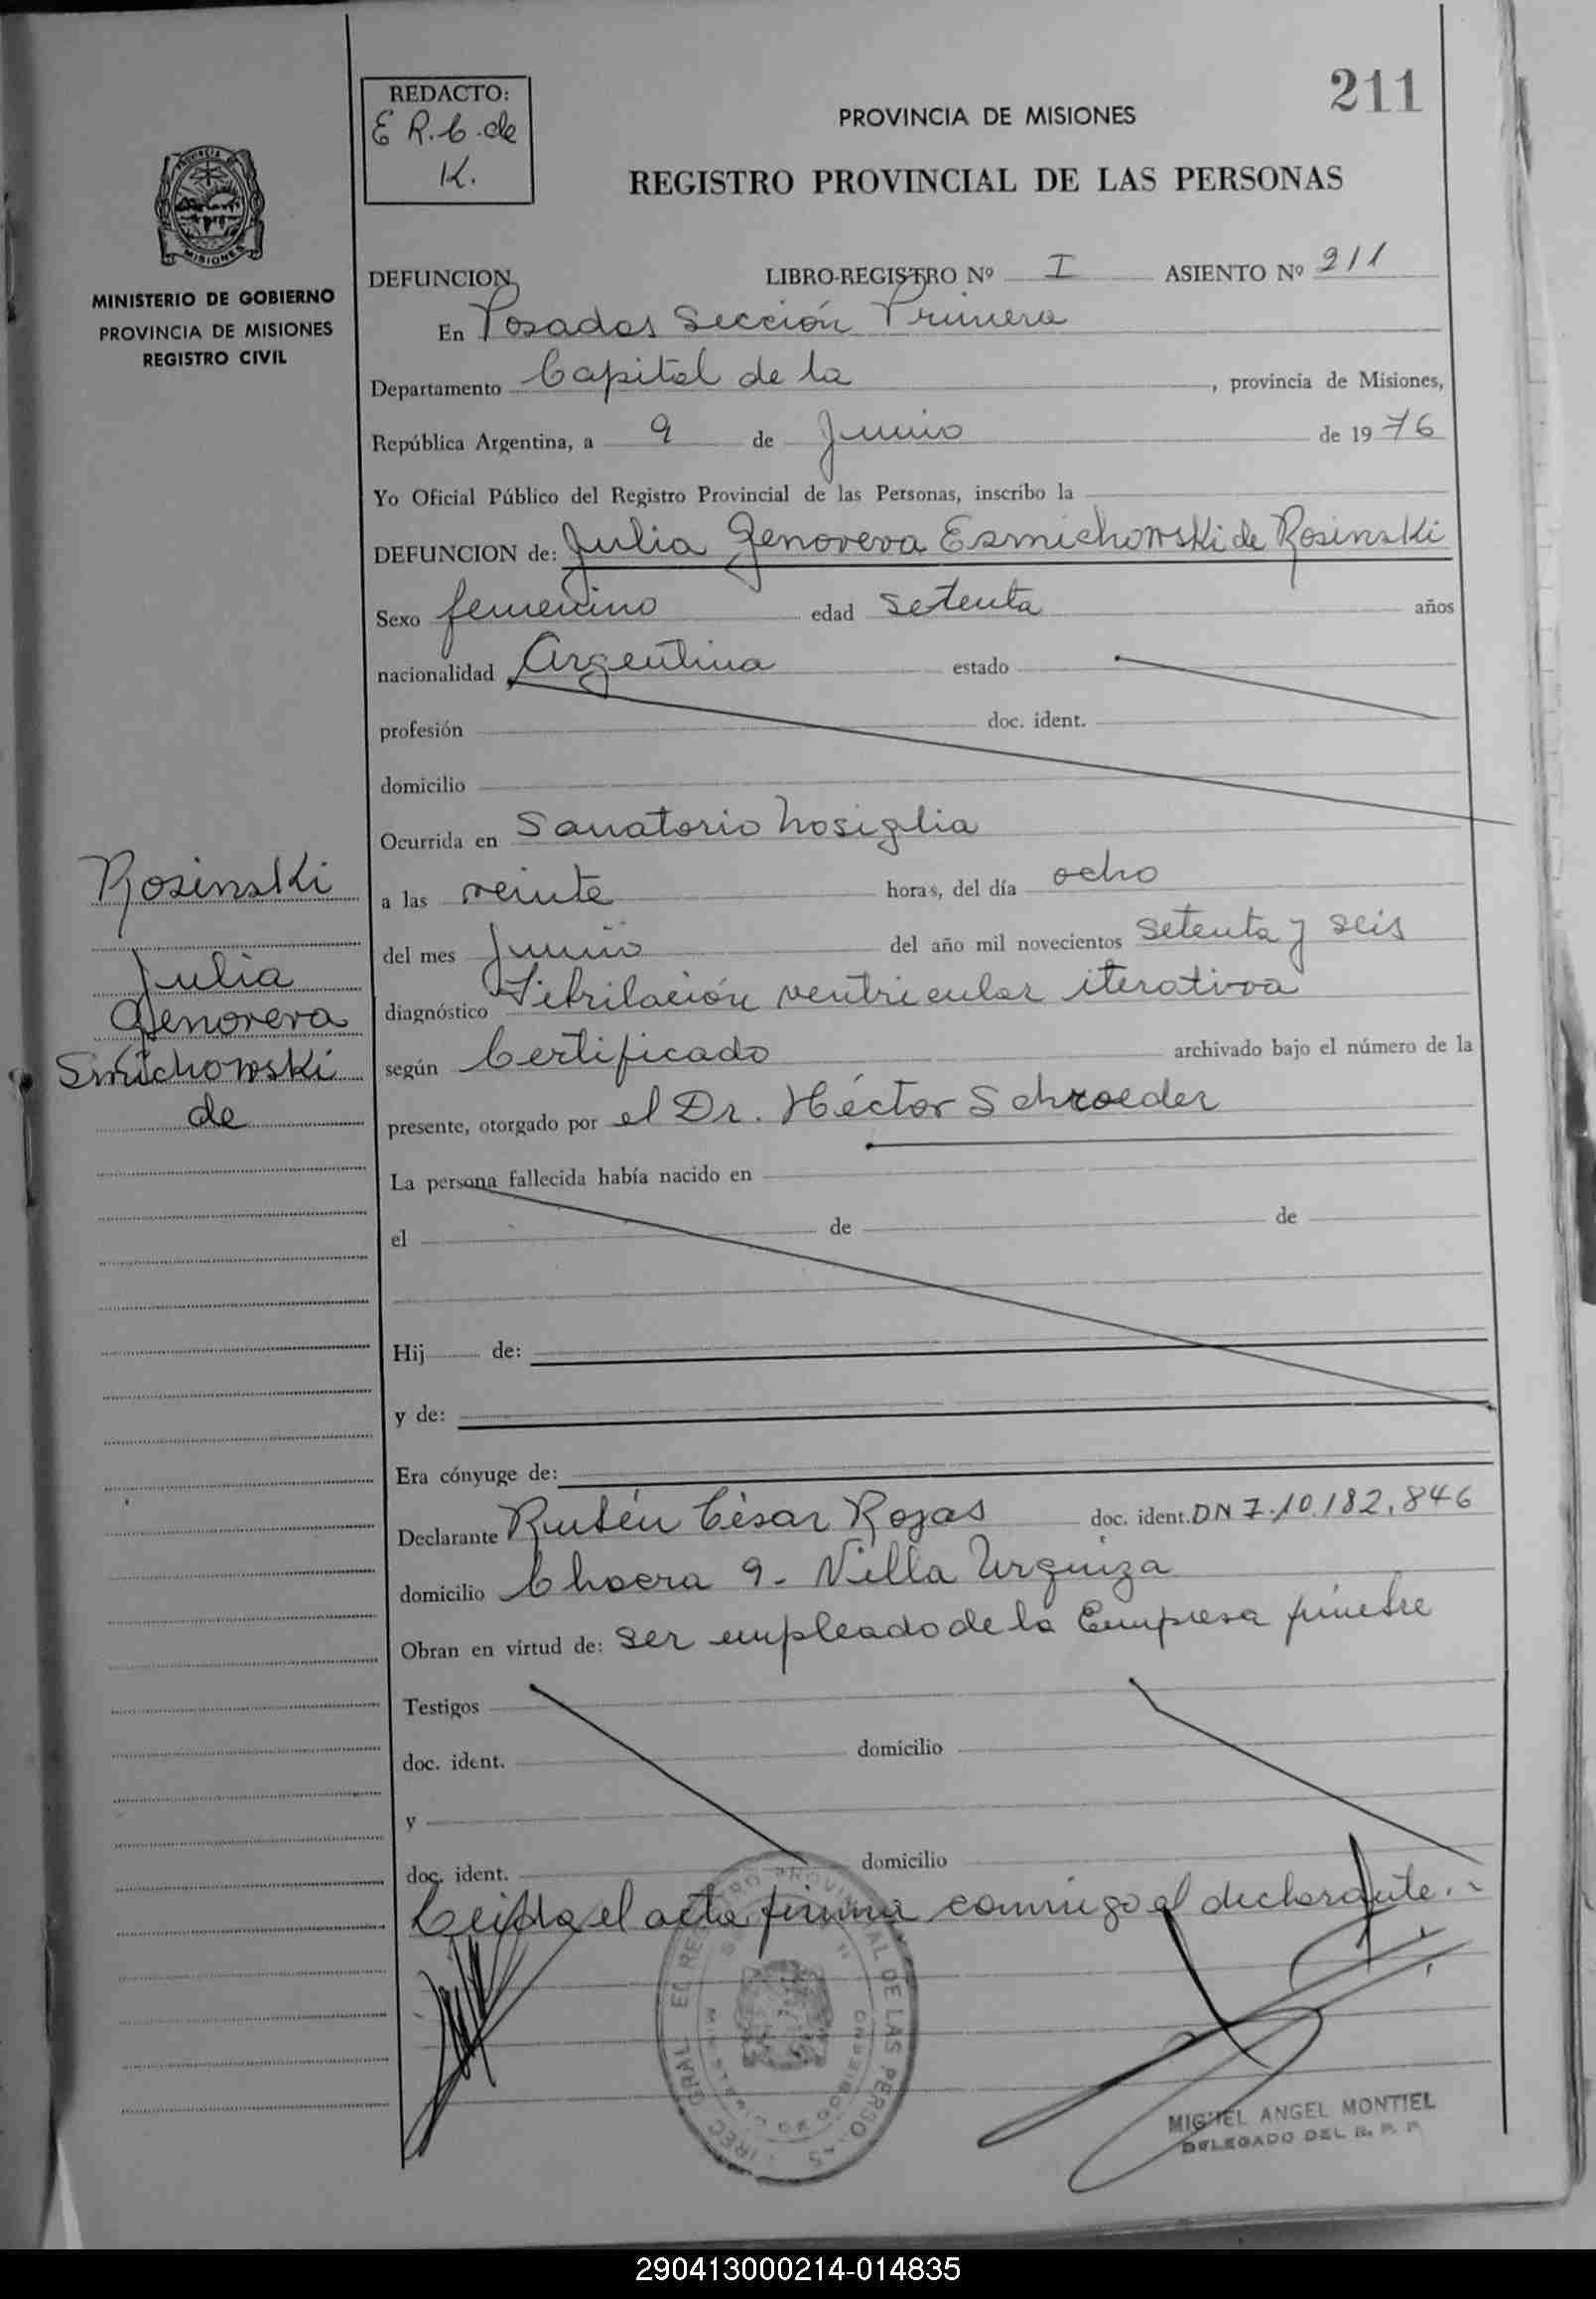 211
REDACTO:
E R. C. de
K.
PROVINCIA DE MISIONES
REGISTRO PROVINCIAL DE LAS PERSONAS
MISIONES
MINISTERIO DE GOBIERNO
PROVINCIA DE MISIONES
REGISTRO CIVIL
DEFUNCION LIBRO-REGISTRO Nº I ASIENTO Nº 211
En Posadas Sección Primera
Departamento Capital de la , provincia de Misiones,
República Argentina, a 9 de Junio de 1976
Yo Oficial Público del Registro Provincial de las Personas, inscribo la
DEFUNCION de: Julia Genoveva Esmichowski de Rosinski
Sexo femenino edad setenta años
nacionalidad Argentina estado
profesión doc. ident.
domicilio
Ocurrida en Sanatorio Nosiglia
a las veinte horas, del día ocho
del mes Junio del año mil novecientos setenta y seis
diagnóstico Fibrilación ventricular iterativa
según Certificado archivado bajo el número de la
presente, otorgado por el Dr. Héctor Schroeder
La persona fallecida había nacido en
el de de
Hij de:
y de:
Era cónyuge de:
Declarante Rubén César Rojas doc. ident. DNI.10.182.846
domicilio Chacra 9- Villa Urquiza
Obran en virtud de: ser empleado de la Empresa fúnebre
Testigos
doc. ident. domicilio
y
doc. ident. domicilio
Leida el acta firma conmigo el declarante.-
Rosinski
Julia
Genoveva
Smichowski
de
MIGUEL ANGEL MONTIEL
DELEGADO DEL R. P. P.
290413000214-014835